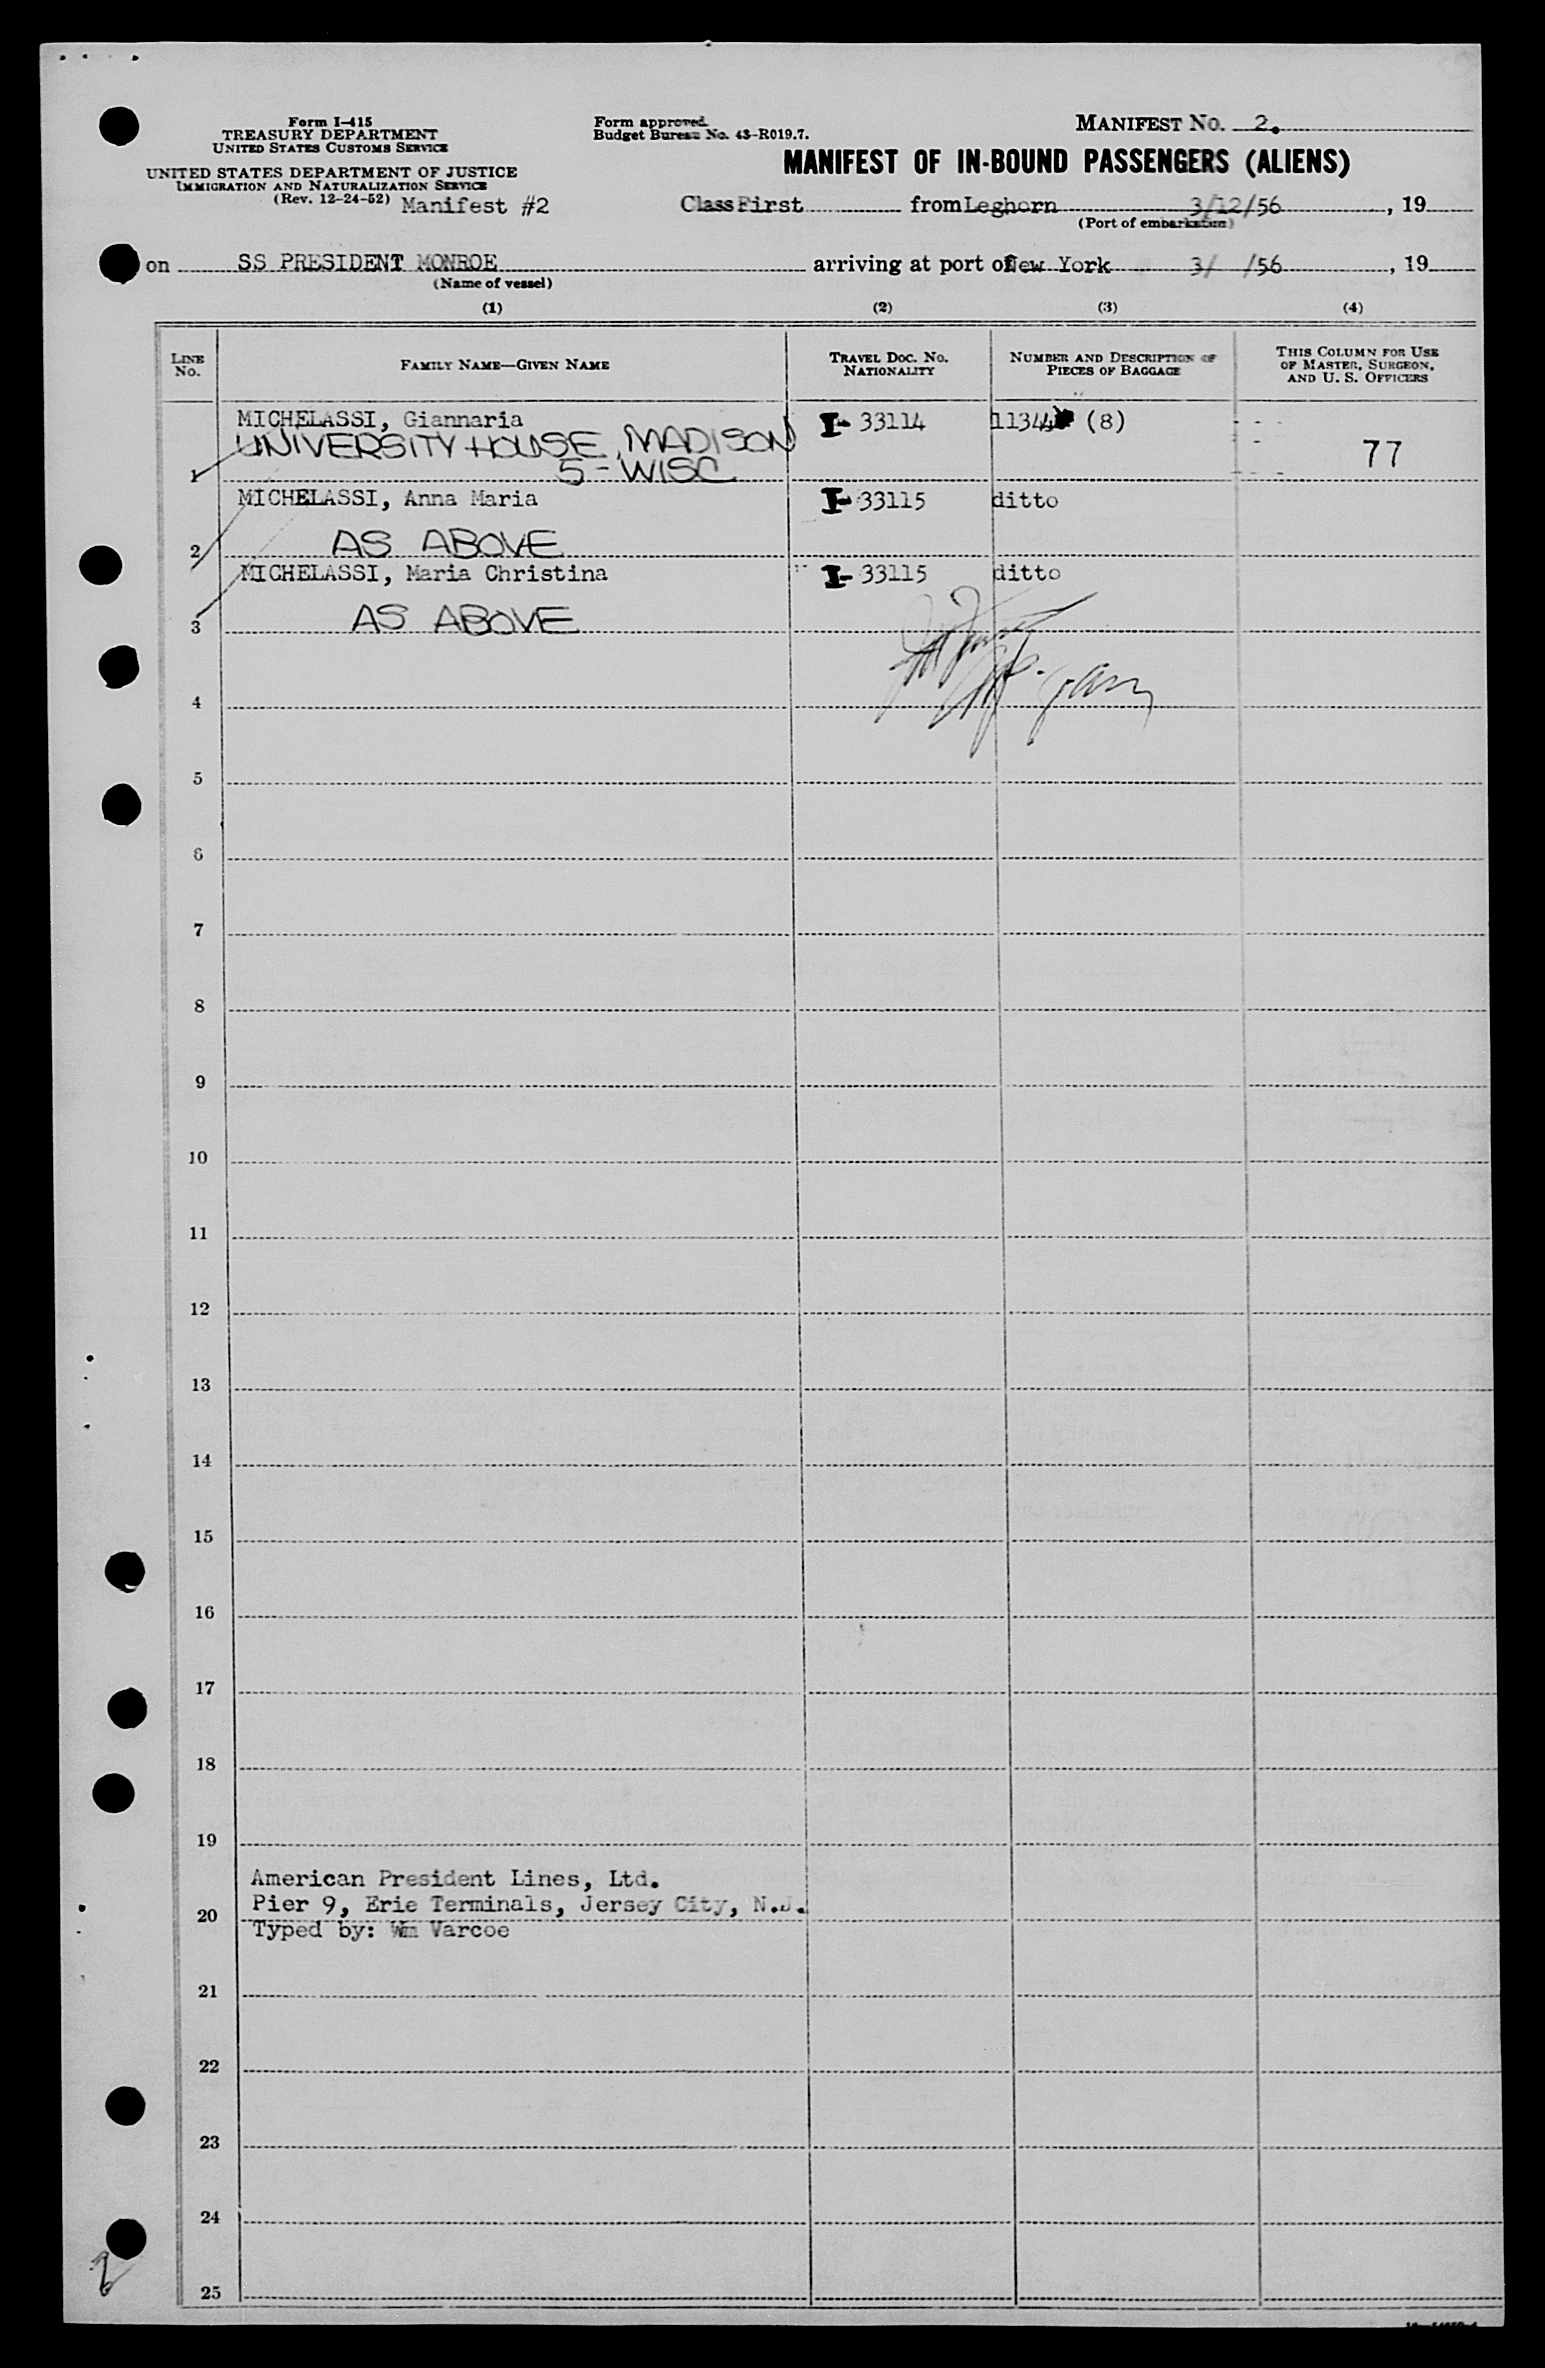 Form I-415
TREASURY DEPARTMENT
UNITED STATES CUSTOMS SERVICE
UNITED STATES DEPARTMENT OF JUSTICE
IMMIGRATION AND NATURALIZATION SERVICE
(Rev. 12-24-52) Manifest #2
Form approved.
Budget Bureau No. 43-R019.7.
MANIFEST No. 2.
MANIFEST OF IN-BOUND PASSENGERS (ALIENS)
Class First from Leghorn 3/12/56, 19
(Port of embarkation)
on SS PRESIDENT MONROE arriving at port of New York 3/ /56, 19
(Name of vessel)
(1) (2) (3) (4)
LINE No. FAMILY NAME—GIVEN NAME TRAVEL DOC. NO. NATIONALITY NUMBER AND DESCRIPTION OF PIECES OF BAGGAGE THIS COLUMN FOR USE OF MASTER, SURGEON, AND U. S. OFFICERS
MICHELASSI, Giannaria I- 33114 11344 (8)
UNIVERSITY HOUSE, MADISON 77
1 5 - WISC
MICHELASSI, Anna Maria I- 33115 ditto
2 AS ABOVE
MICHELASSI, Maria Christina I- 33115 ditto
3 AS ABOVE
4
5
6
7
8
9
10
11
12
13
14
15
16
17
18
19
American President Lines, Ltd.
Pier 9, Erie Terminals, Jersey City, N.J.
20
Typed by: Wm Varcoe
21
22
23
24
25
2